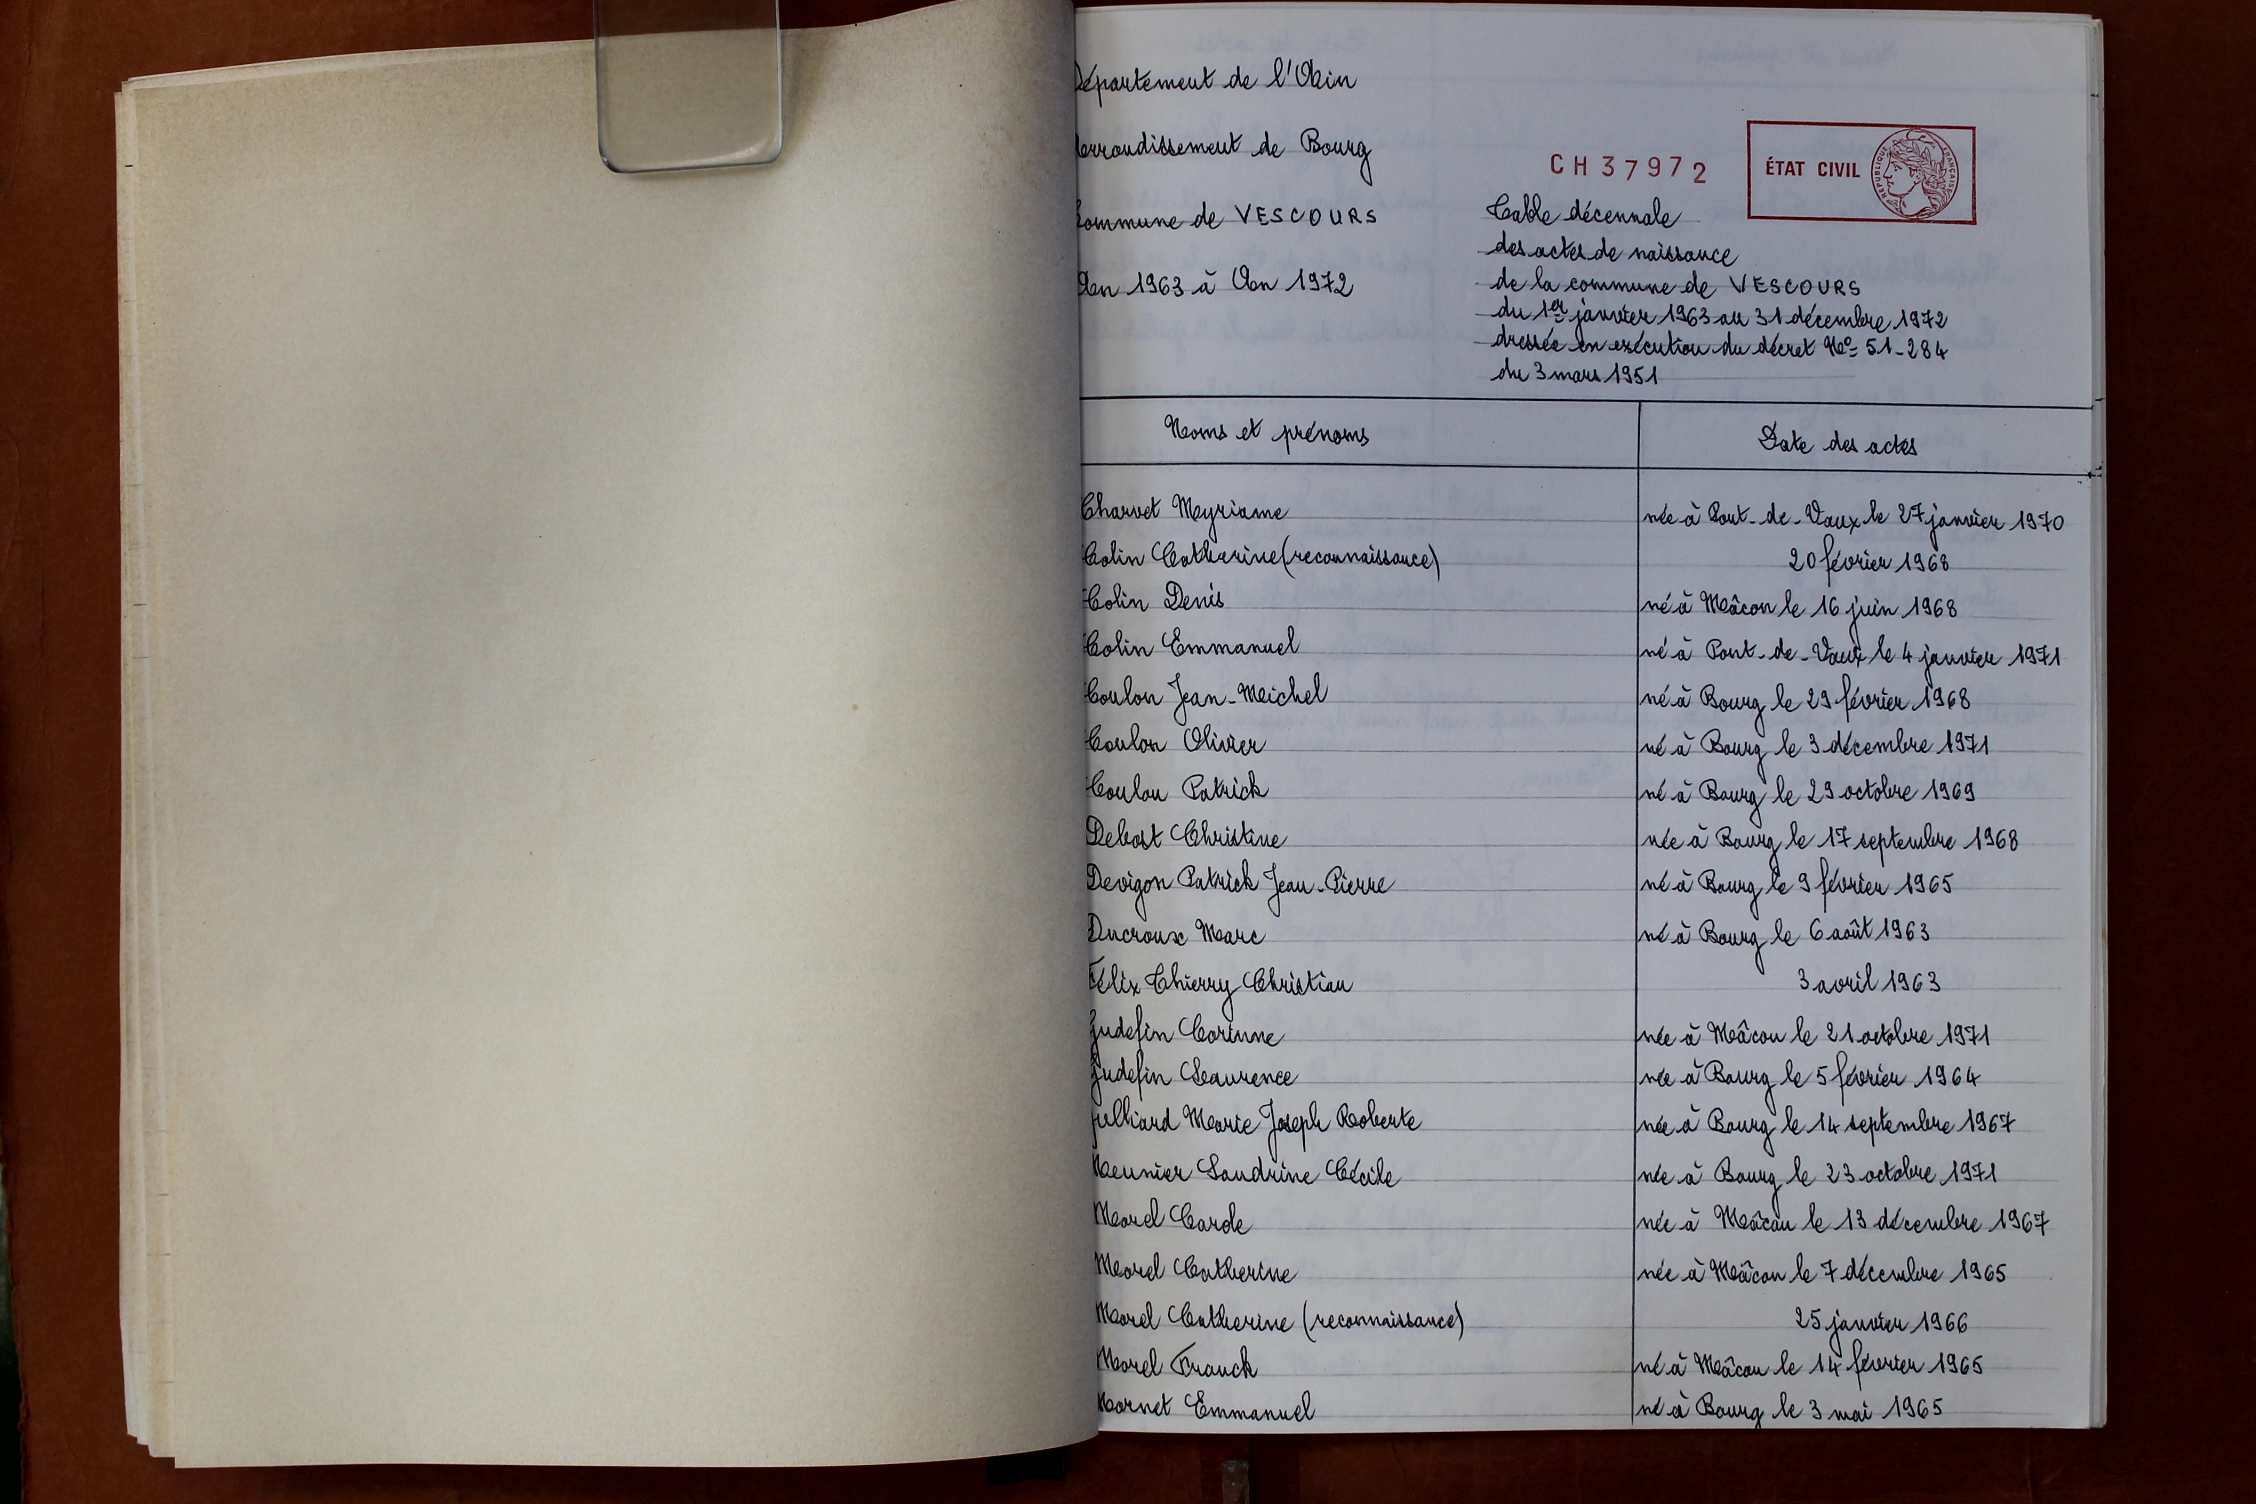 Département de l'Ain
Arrondissement de Bourg
CH37972
ÉTAT CIVIL
RÉPUBLIQUE FRANÇAISE
Commune de VESCOURS
An 1963 à An 1972
Table décennale
des actes de naissance
de la commune de VESCOURS
du 1er janvier 1963 au 31 décembre 1972
dressée en exécution du décret No 51-284
du 3 mars 1951
Noms et prénoms Date des actes
Charvet Myriame née à Pont-de-Vaux le 27 janvier 1970
Colin Catherine (reconnaissance) 20 février 1968
Colin Denis né à Mâcon le 16 juin 1968
Colin Emmanuel né à Pont-de-Vaux le 4 janvier 1971
Coulon Jean-Michel né à Bourg le 29 février 1968
Coulon Olivier né à Bourg le 3 décembre 1971
Coulon Patrick né à Bourg le 29 octobre 1969
Debost Christine née à Bourg le 17 septembre 1968
Devigon Patrick Jean-Pierre né à Bourg le 9 février 1965
Ducroux Marc né à Bourg le 6 août 1963
Félix Thierry Christian 3 avril 1963
Gudefin Corinne née à Mâcon le 21 octobre 1971
Gudefin Laurence née à Bourg le 5 février 1964
Julliard Marie Joseph Roberte née à Bourg le 14 septembre 1967
Meunier Sandrine Cécile née à Bourg le 23 octobre 1971
Morel Carole née à Mâcon le 13 décembre 1967
Morel Catherine née à Mâcon le 7 décembre 1965
Morel Catherine (reconnaissance) 25 janvier 1966
Morel Franck né à Mâcon le 14 février 1965
Mornet Emmanuel né à Bourg le 3 mai 1965